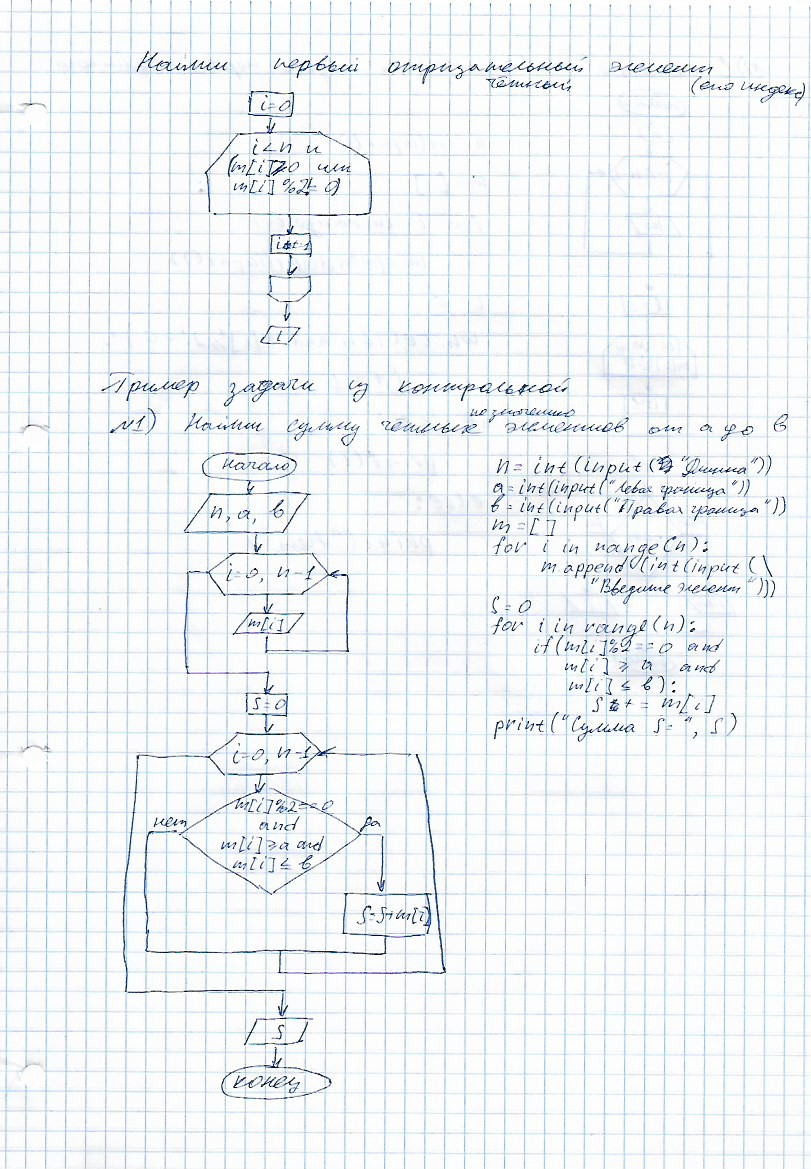 Найти первый отрицательный элемент
чётный (его индекс)
i=0
i<n и
(m[i]>0 или
m[i]%2!=0)
i+=1
i
Пример задачи из контрольной
по значению
№1) Найти сумму чётных элементов от a до b
начало
n, a, b
i=0, n-1
m[i]
S=0
i=0, n-1
m[i]%2==0
and
m[i]≥a and
m[i]≤b
нет
да
S=S+m[i]
S
конец
n = int(input("Длина"))
a = int(input("Левая граница"))
b = int(input("Правая граница"))
m = []
for i in range(n):
m append (int(input(\
"Введите элемент")))
S = 0
for i in range(n):
if (m[i]%2==0 and
m[i] ≥ a and
m[i] ≤ b):
S += m[i]
print("Сумма S= ", S)